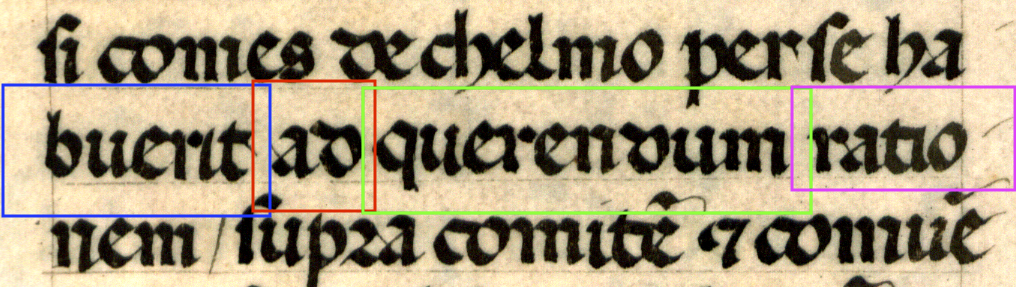 si comes de chelmo per se ha
buerit ad querendum ratio
nem / supra comitē ⁊ comūē